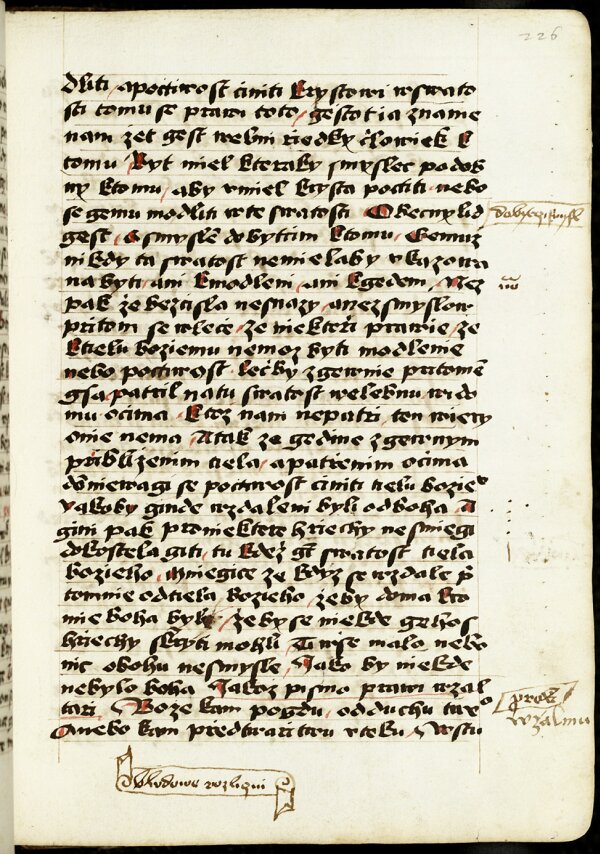 226
dliti, a poctiwost činiti krystowi w swato
sti tomu se prawi toto, gestot ia zname
nam zet gest welmi riedky člowiek k
tomu, Byt miel kteraky smyslec podob
ny ktomu, aby vmiel krysta poctiti, nebo
se gemu modliti w te swatosti, Obecny lid
gest, O smyslē dobytčim ktomu, Gemuz
nikdy ta swatost nemielaby vkazowa
na byti, ani kmodleni, ani kgedeni, Nez
pak że bezcisla nesnazy, a nezsmyslow
pritom se wlece, że niekteři prawie, że
ktielu boziemu nemoz byti modlenie
nebo poctiwost, lečby zgewnie pritomē
gsa, patřil na tu swatost welebnu wido
mu ocima, Ktoz nam nepatři, ten wiery
onie nema, A tak ze gedine zgewnym
přibliženim tiela, a patřenim ocima
domniewagi se poctiwost činiti tielu bozie°
yakoby ginde wzdaleni byli od boha, A
gini pak pro niektere hriechy nesmiegi
do kostela giti, tu kdež gt swatost tiela
bozieho, Mniegice ze kdyz se wzdale p̄
tomnie od tiela bozieho, żeby doma kro
mie boha byli, żeby se niekde gelhos
hriechy skryti mohli, Ti wse malo nebo
nic o bohu nesmysle, Jako by niekde
nebylo boha, Jakoz pismo prawi w zal
tari, Boze kam pogdu, od duchu twe°
A nebo kam před twari twu vteku, Wstu
w zalmu
bludowe rozlični